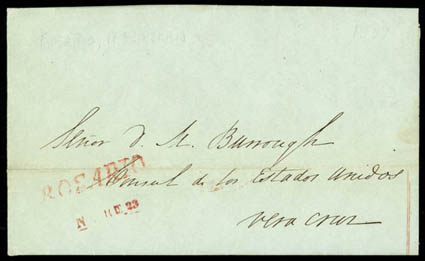 Señor D. M. Burrough
ROSARIO
Consul de los Estados Unidos
N 23
Vera Cruz